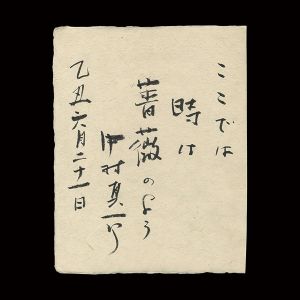 ここでは
時は
薔薇のよう
中村真一郎
乙丑六月二十一日